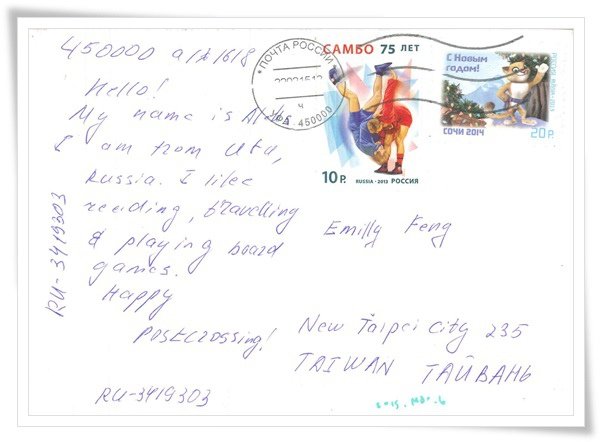 450000 а/я 1618
Hello!
My name is
I am from Ufa,
Russia. I like
reading, travelling
& playing board
games.
Happy
Postcrossing!
RU-3419303
RU-3419303
ПОЧТА РОССИИ
УФА 450000
САМБО 75 ЛЕТ
10 Р. RUSSIA · 2013 РОССИЯ
С Новым
годом!
СОЧИ 2014
20 р.
Emilly Feng
New Taipei City 235
TAIWAN ТАЙВАНЬ